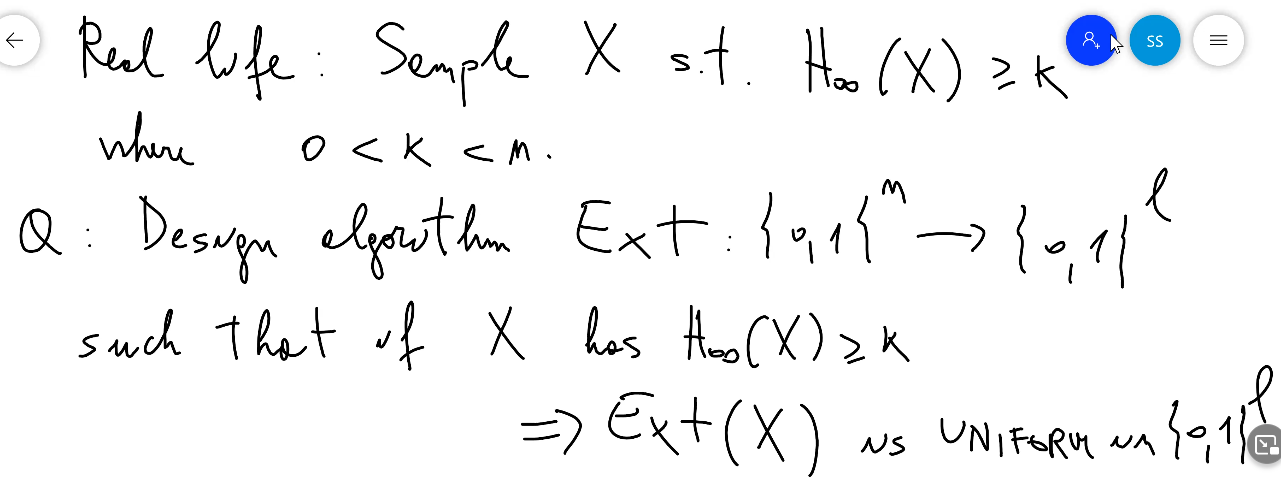 Real life: Sample X s.t. H∞(X) ≥ k
SS
where 0 < k < n.
Q: Design algorithm Ext: {0,1}^n → {0,1}^l
such that if X has H∞(X) ≥ k
⇒ Ext(X) is UNIFORM in {0,1}^l